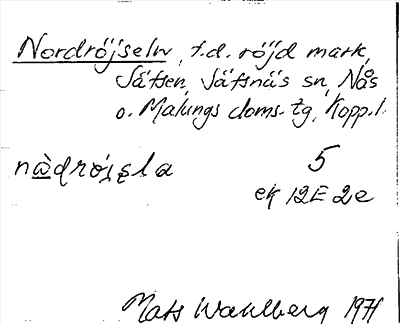 Nordröjseln, f.d. röjd mark,
Säfsen, Säfsnäs sn, Nås
o. Malungs doms. tg, Kopp. l.
nàdrøi̯sla 5
ek 12E 2e
Mats Wahlberg 1971